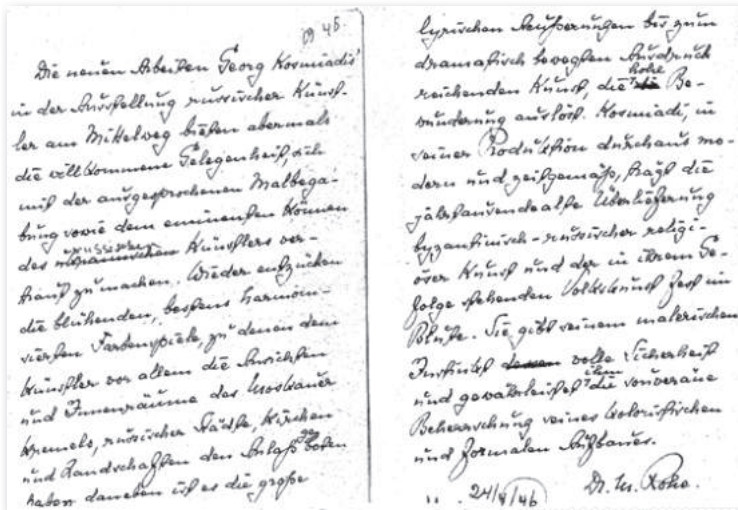 45.
Die neuen Arbeiten Georg Kosmiadis'
in der Ausstellung russischer Künst-
ler am Mittelweg bieten abermals
die willkommene Gelegenheit, sich
mit der ausgesprochenen Malbega-
bung sowie dem eminenten Können
russischen
des Künstlers ver-
traut zu machen. Wieder entzücken
die blühenden, bestens harmoni-
sierten Farbenspiele, zu denen dem
Künstler vor allem die Ansichten
und Innenräume des Moskauer
Kremels, russischer Städte, Kirchen
und Landschaften den Anlass boten
haben daneben ist es die große
lyrischen Äußerungen bis zum
dramatisch bewegten Ausdruck
hohe
reichenden Kunst, die Be-
wunderung auslöst. Kosmiadi, in
seiner Produktion durchaus mo-
dern und zeitgemäß, trägt die
jahrtausendealte Überlieferung
byzantinisch-russischer religi-
öser Kunst und der in ihrem Ge-
folge stehenden Volkskunst fest im
Blute. Sie gibt seinem malerischen
Instinkt volle Sicherheit
ihm
und gewährleistet die souveräne
Beherrschung seines koloristischen
und formalen Aufbaues.
24/4/46 Dr. H. Rohe.